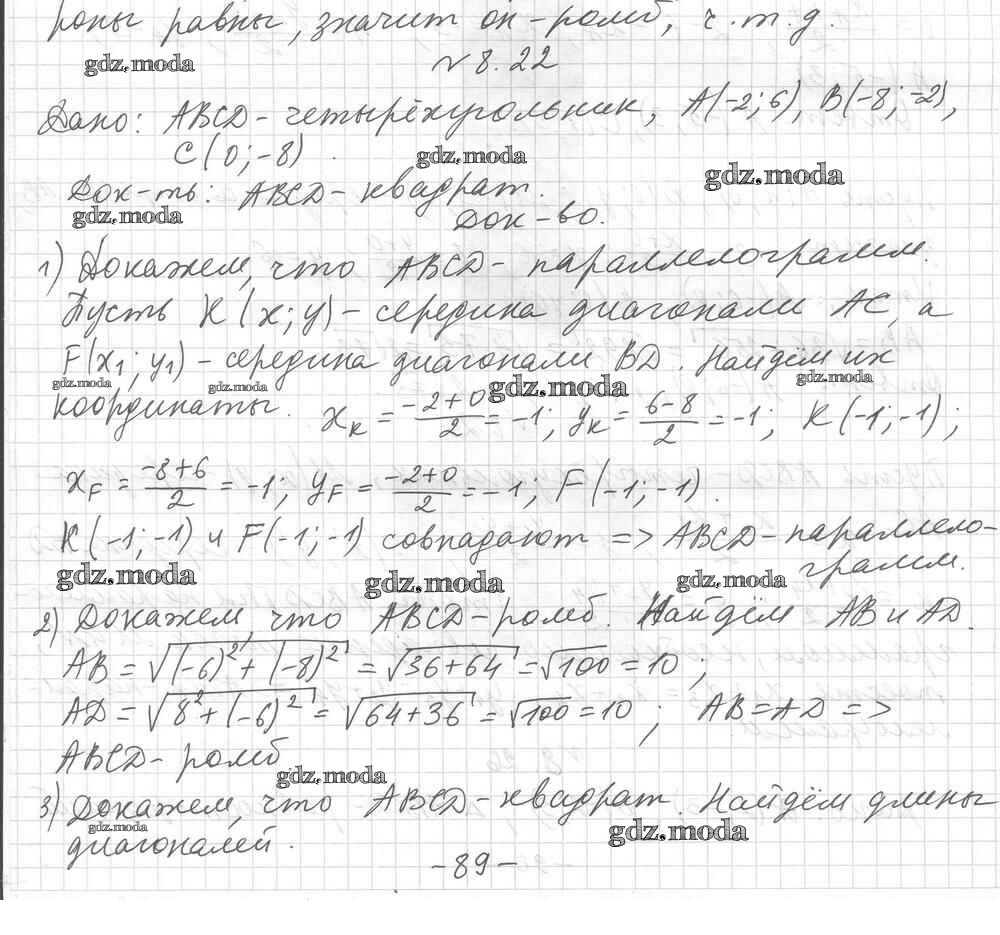 роны равны, значит он - ромб, ч.т.д.
gdz.moda
№ 8.22
Дано: ABCD - четырёхугольник, A(-2; 6), B(-8; -2),
C(0; -8)
gdz.moda
gdz.moda
Док-ть: ABCD - квадрат.
gdz.moda
Док-во.
1) Докажем, что ABCD - параллелограмм.
Пусть K(x; y) - середина диагонали AC, а
F(x₁; y₁) - середина диагонали BD. Найдём их
gdz.moda gdz.moda gdz.moda gdz.moda
координаты. x_K = (-2+0)/2 = -1; y_K = (6-8)/2 = -1; K(-1; -1);
x_F = (-8+6)/2 = -1; y_F = (-2+0)/2 = -1; F(-1; -1).
K(-1; -1) и F(-1; -1) совпадают => ABCD - параллело-
грамм.
gdz.moda gdz.moda gdz.moda
2) Докажем, что ABCD - ромб. Найдём AB и AD.
AB = √((-6)² + (-8)²) = √(36+64) = √100 = 10;
AD = √(8² + (-6)²) = √(64+36) = √100 = 10; AB = AD =>
ABCD - ромб
gdz.moda
3) Докажем, что ABCD - квадрат. Найдём длины
gdz.moda gdz.moda
диагоналей.
- 89 -